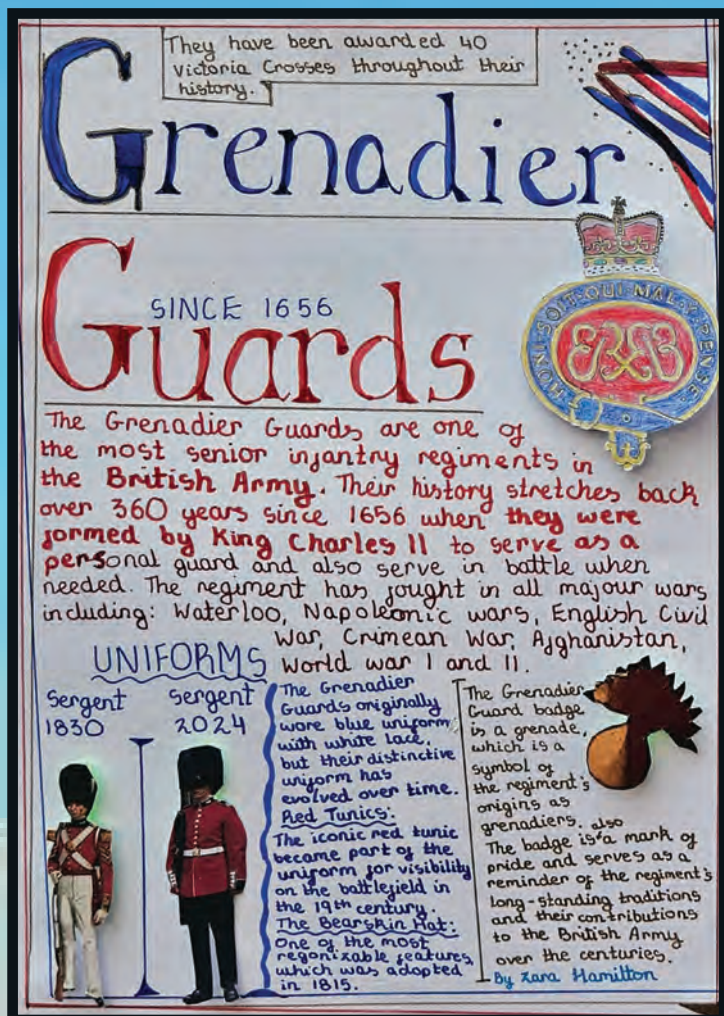 They have been awarded 40
Victoria Crosses throughout their
history.
Grenadier
SINCE 1656
Guards
HONI·SOIT·QUI·MAL·Y·PENSE
The Grenadier Guards are one of
the most senior infantry regiments in
the British Army. Their history stretches back
over 360 years since 1656 when they were
formed by King Charles II to serve as a
personal guard and also serve in battle when
needed. The regiment has fought in all majour wars
including: Waterloo, Napoleonic wars, English Civil
War, Crimean War, Afghanistan,
World war I and II.
UNIFORMS
Sergent
1830
Sergent
2024
The Grenadier
Guards originally
wore blue uniform
with white lace,
but their distinctive
uniform has
evolved over time.
Red Tunics:
The iconic red tunic
became part of the
uniform for visibility
on the battlefield in
the 19th century.
The Bearskin Hat:
One of the most
regonizable features,
which was adopted
in 1815.
The Grenadier
Guard badge
is a grenade,
which is a
symbol of
the regiment's
origins as
grenadiers. also
The badge is a mark of
pride and serves as a
reminder of the regiment's
long-standing traditions
and their contributions
to the British Army
over the centuries.
By Zara Hamilton